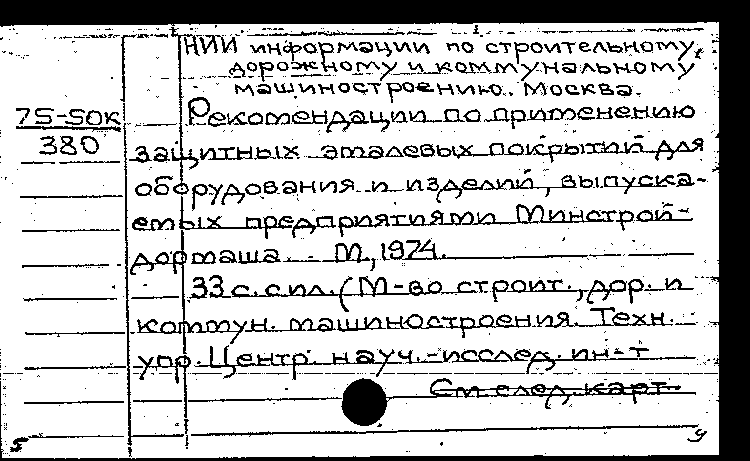 НИИ информации по строительному,
дорожному и коммунальному
машиностроению. Москва.
75-50к
380
Рекомендации по применению
защитных эмалевых покрытий для
оборудования и изделий, выпуска-
емых предприятиями Минстрой-
дормаша. - М., 1974.
33 с. с ил. (М-во строит., дор. и
коммун. машиностроения. Техн.
упр. Центр. науч.-исслед. ин-т
См. след. карт.